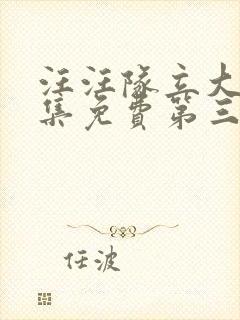 汪汪隊立大
集免費第三
任波